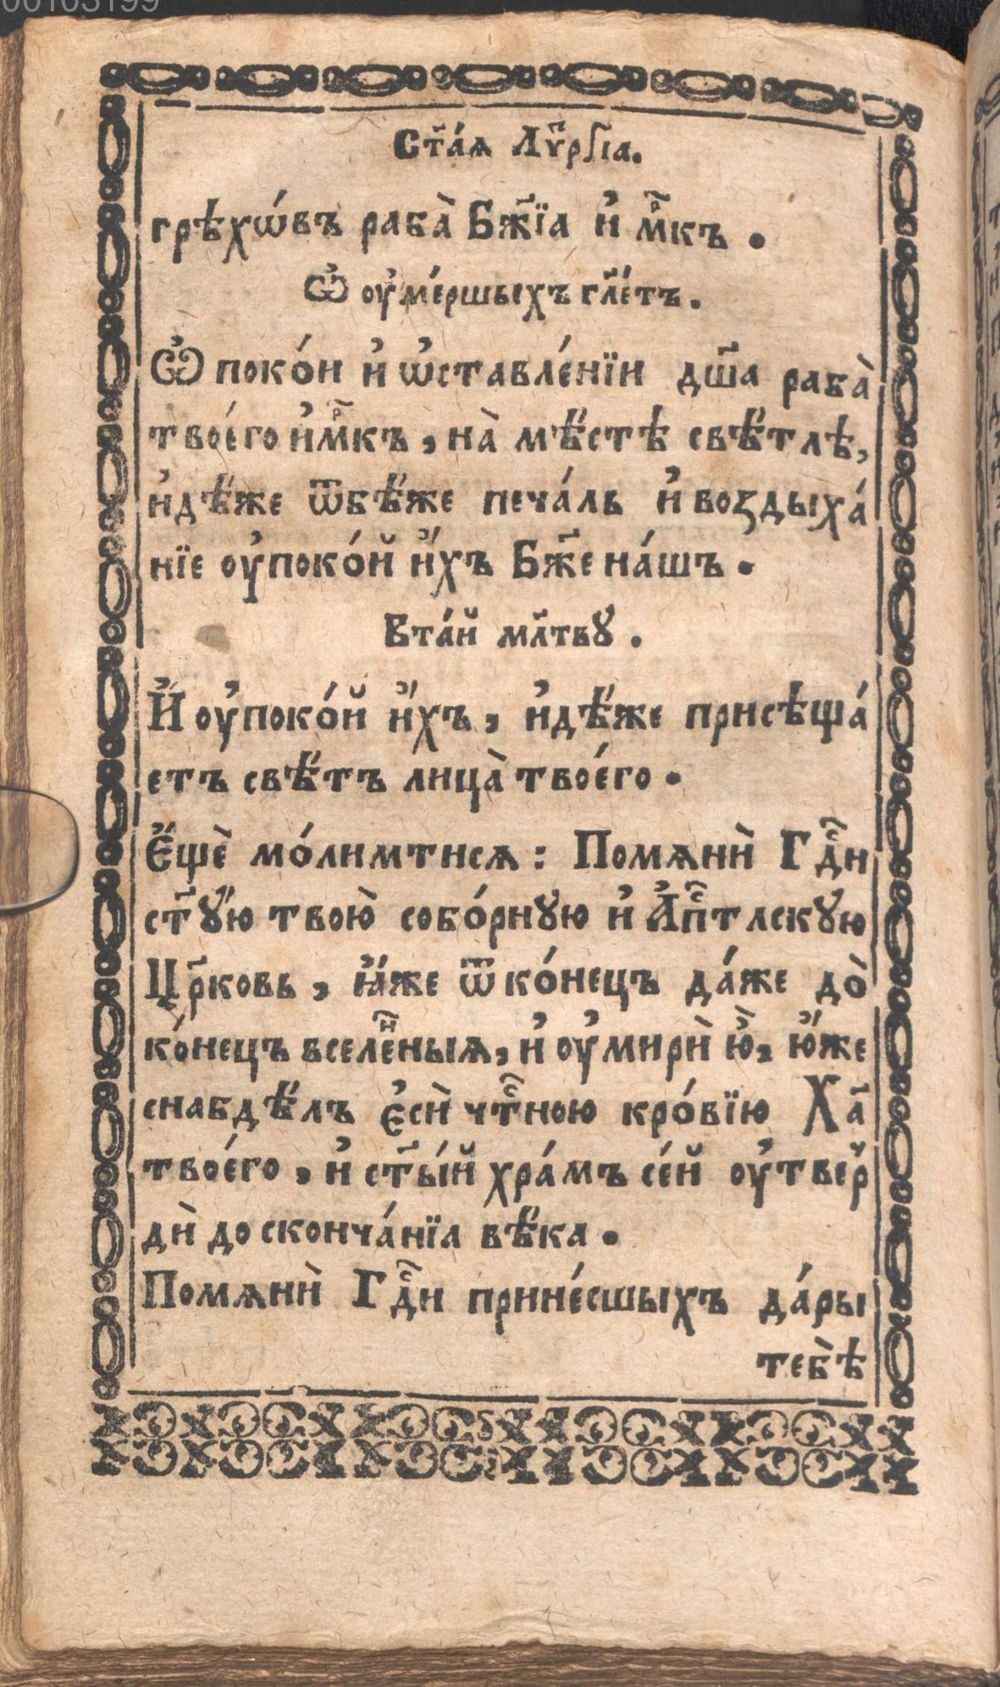 00103199
Ст҃а́ѧ Лꙋ҃ргїа.
грѣхѡ́въ раба̀ Бж҃їа и҆ и҆м҃къ .
Ѿ оу҆ме́ршыхъ гл҃е́тъ.
Ѡ҆ поко́и и҆ ѡ҆ставле́нїи дш҃а раба̀
твоего̀ и҆м҃къ , на̀ мѣ́стѣ свѣ́тлѣ,
и҆дѣ́же ѿбѣ́же печа́ль и҆ воздыха́
нїе оу҆поко́й и҆́хъ Бж҃е на́шъ .
Вта́й мл҃твꙋ .
И҆ оу҆поко́й и҆́хъ , и҆дѣ́же присѣща́
етъ свѣ́тъ лица̀ твоего̀ .
Є҆щѐ мо́лимтисѧ : Помѧнѝ Гдⷭ҇и
ст҃ꙋ́ю твою̀ собо́рнꙋю и҆ А҆пⷭ҇тлскꙋю
Цр҃ковь , ꙗ҆́же ѿ ко́нецъ да́же до̀
ко́нецъ вселе́нныѧ , и҆ оу҆мирѝ ю҆̀, ю҆́же
снабдѣ́лъ є҆сѝ чтⷭ҇ною кро́вїю Ха҃
твоего̀ , и҆ ст҃ы́й хра́мъ се́й оу҆твер
дѝ до сконча́нїа вѣ́ка .
Помѧнѝ Гдⷭ҇и прине́сшыхъ да́ры
тебѣ̀